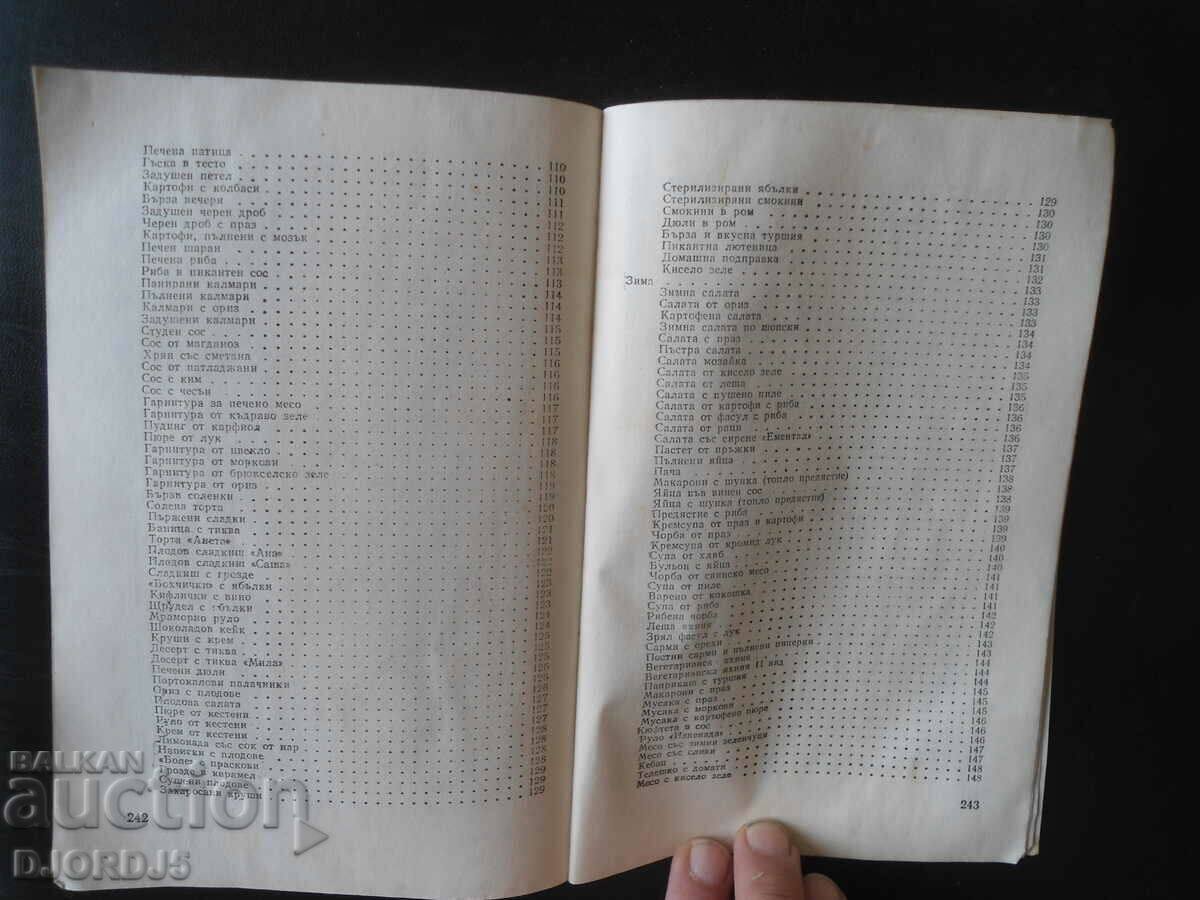 Печена патица . . . 110
Гъска в тесто . . . 110
Задушен петел . . . 110
Картофи с колбаси . . . 111
Бърза вечеря . . . 111
Задушен черен дроб . . . 112
Черен дроб с праз . . . 112
Картофи, пълнени с мозък . . . 112
Печен шаран . . . 113
Печена риба . . . 113
Риба в пикантен сос . . . 113
Панирани калмари . . . 114
Пълнени калмари . . . 114
Калмари с ориз . . . 114
Задушени калмари . . . 115
Студен сос . . . 115
Сос от магданоз . . . 115
Хрян със сметана . . . 116
Сос от патладжани . . . 116
Сос с ким . . . 116
Сос с чесън . . . 116
Гарнитура за печено месо . . . 117
Гарнитура от къдраво зеле . . . 117
Пудинг от карфиол . . . 117
Пюре от лук . . . 118
Гарнитура от цвекло . . . 118
Гарнитура от моркови . . . 118
Гарнитура от брюкселско зеле . . . 118
Гарнитура от ориз . . . 119
Бързи соленки . . . 119
Солена торта . . . 120
Пържени сладки . . . 120
Баница с тиква . . . 121
Торта «Анета» . . . 121
Плодов сладкиш «Ана» . . . 122
Плодов сладкиш «Саша» . . . 122
Сладкиш с грозде . . . 122
«Бохчички» с ябълки . . . 123
Кифлички с вино . . . 123
Щрудел с ябълки . . . 123
Мраморно руло . . . 124
Шоколадов кейк . . . 124
Круши с крем . . . 125
Десерт с тиква . . . 125
Десерт с тиква «Мила» . . . 125
Печени дюли . . . 125
Портокалови палачинки . . . 126
Ориз с плодове . . . 126
Плодова салата . . . 127
Пюре от кестени . . . 127
Руло от кестени . . . 127
Крем от кестени . . . 128
Лимонада със сок от нар . . . 128
Наниски с плодове . . . 128
«Боле» с праскови . . . 128
Грозде в карамел . . . 129
Сушени плодове . . . 129
Захаросани круши . . . 129
242
Стерилизирани ябълки . . . 129
Стерилизирани смокини . . . 130
Смокини в ром . . . 130
Дюли в ром . . . 130
Бърза и вкусна туршия . . . 130
Пикантна лютеница . . . 131
Домашна подправка . . . 131
Кисело зеле . . . 132
Зима . . . 133
Зимна салата . . . 133
Салата от ориз . . . 133
Картофена салата . . . 134
Зимна салата по шопски . . . 134
Салата с праз . . . 134
Пъстра салата . . . 134
Салата мозайка . . . 135
Салата от кисело зеле . . . 135
Салата от леща . . . 135
Салата с пушено пиле . . . 136
Салата от картофи с риба . . . 136
Салата от фасул с риба . . . 136
Салата от раци . . . 136
Салата със сирене «Ементал» . . . 137
Пастет от пръжки . . . 137
Пълнени яйца . . . 137
Пача . . . 138
Макарони с шунка (топло предястие) . . . 138
Яйца във винен сос . . . 138
Яйца с шунка (топло предястие) . . . 139
Предястие с риба . . . 139
Кремсупа от праз и картофи . . . 139
Чорба от праз . . . 140
Кремсупа от кромид лук . . . 140
Супа от хляб . . . 140
Бульон с яйца . . . 141
Чорба от свинско месо . . . 141
Супа от пиле . . . 141
Варено от кокошка . . . 141
Супа от риба . . . 142
Рибена чорба . . . 142
Леща яхния . . . 142
Зрял фасул с лук . . . 143
Сарми с орехи . . . 143
Постни сарми и пълнени пиперки . . . 144
Вегетарианска яхния . . . 144
Вегетарианска яхния II вид . . . 144
Паприкаш с туршия . . . 145
Макарони с праз . . . 145
Мусака с праз . . . 145
Мусака с моркови . . . 146
Мусака с картофено пюре . . . 146
Кюфтета в сос . . . 146
Руло «Изненада» . . . 147
Месо със зимни зеленчуци . . . 147
Месо със сливи . . . 148
Кебап . . . 148
Телешко с домати
Месо с кисело зеле
243
BALKAN
auction
DJORDJ5